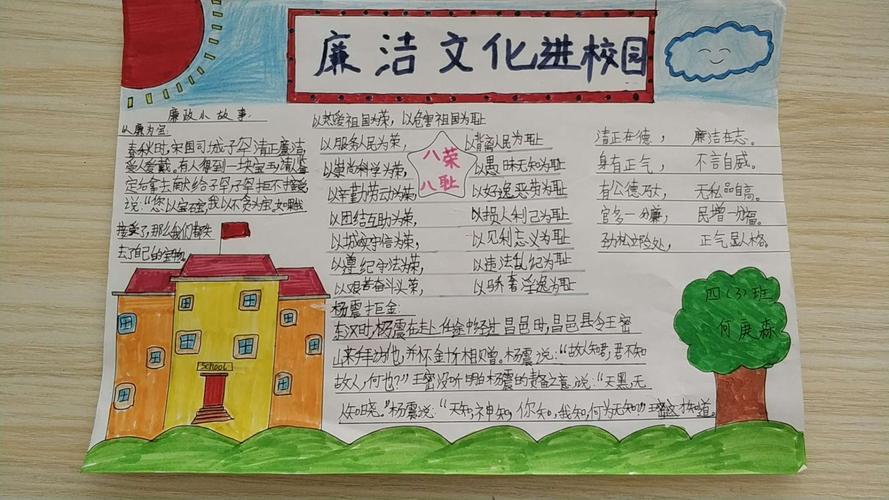 廉洁文化进校园
廉政小故事
以廉为宝
春秋时,宋国司城子罕清正廉洁,
受人爱戴。有人得到一块宝玉,请人鉴
定后拿去献给子罕,子罕拒不接受,
说:“您以宝石为宝,我以不贪为宝,如果我
接受了,那么我们都失
去了自己的宝物
school
以热爱祖国为荣,以危害祖国为耻
以服务人民为荣,以背离人民为耻
以崇尚科学为荣,以愚昧无知为耻
以辛勤劳动为荣,以好逸恶劳为耻
以团结互助为荣,以损人利己为耻
以诚实守信为荣,以见利忘义为耻
以遵纪守法为荣,以违法乱纪为耻
以艰苦奋斗为荣,以骄奢淫逸为耻
八荣
八耻
清正在德,廉洁在志。
身有正气,不言自威。
有公德乃大,无私品自高。
官多一分廉,民增一分福。
劲松立险处,正气显人格。
杨震拒金:
东汉时,杨震在赴任途中经过昌邑时,昌邑县令王密
来拜访他,并怀金十斤相赠。杨震说:“故人知君,君不知
故人,何也?”王密没听明白杨震的责备之意,说:“天黑,无
人知晓。”杨震说:“天知,神知,你知,我知,何为无知?”王密才知道。
四(3)班
何庚森